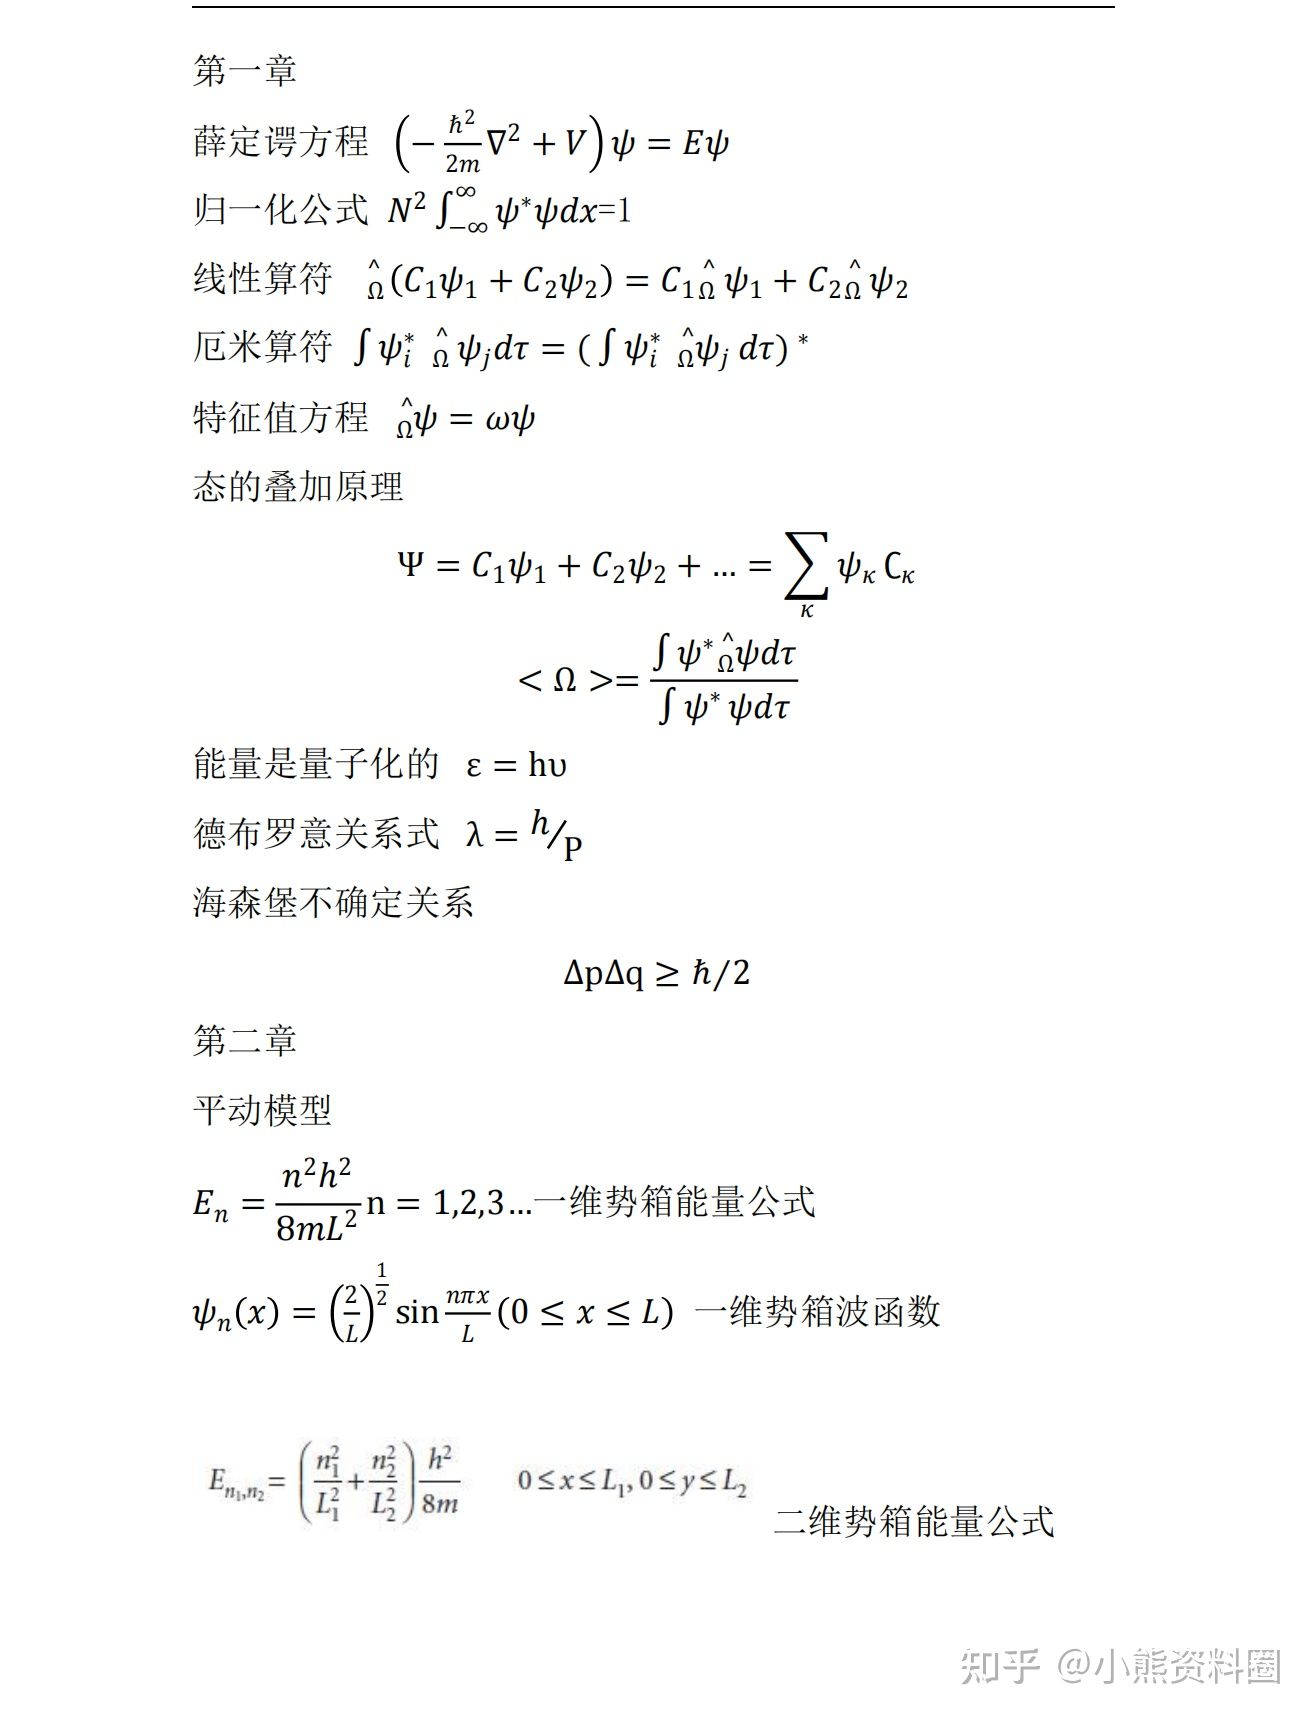 第一章
薛定谔方程 (−ℏ²/2m ∇² + V)ψ = Eψ
归一化公式 N² ∫_{−∞}^{∞} ψ*ψdx=1
线性算符 Ω̂(C₁ψ₁ + C₂ψ₂) = C₁Ω̂ψ₁ + C₂Ω̂ψ₂
厄米算符 ∫ψᵢ* Ω̂ψⱼdτ = (∫ψᵢ* Ω̂ψⱼ dτ)*
特征值方程 Ω̂ψ = ωψ
态的叠加原理
Ψ = C₁ψ₁ + C₂ψ₂ + … = ∑_κ ψ_κ C_κ
< Ω >= ∫ψ*Ω̂ψdτ / ∫ψ*ψdτ
能量是量子化的 ε = hυ
德布罗意关系式 λ = h/P
海森堡不确定关系
ΔpΔq ≥ ℏ/2
第二章
平动模型
Eₙ = n²h²/8mL² n = 1,2,3…一维势箱能量公式
ψₙ(x) = (2/L)^{1/2} sin nπx/L (0 ≤ x ≤ L) 一维势箱波函数
E_{n₁,n₂} = (n₁²/L₁² + n₂²/L₂²) h²/8m 0≤x≤L₁, 0≤y≤L₂ 二维势箱能量公式
知乎 @小熊资料圈